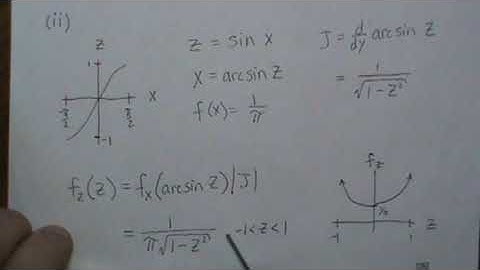 (ii)
z
1
x
-π/2
π/2
-1
z = sin x
x = arcsin z
f(x) = 1/π
J = d/dy arcsin z
= 1/√(1-z²)
f_z(z) = f_x(arcsin z)|J|
= 1/(π√(1-z²)) -1<z<1
f_z
1/π
-1
1
z